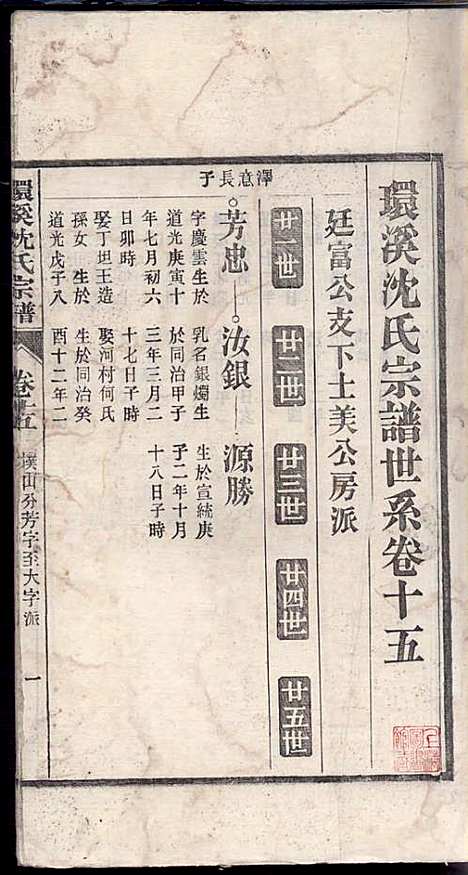 環溪沈氏宗譜世系卷十五
廷富公支下士美公房派
廿一世 廿二世 廿三世 廿四世 廿五世
澤意長子
芳忠 汝銀 源勝
字慶雲生於
道光庚寅十
年七月初六
日卯時
娶丁坦王造
孫女 生於
道光戊子八
乳名銀燭生
於同治甲子
三年三月二
十七日子時
娶河村何氏
生於同治癸
酉十二年二
生於宣統庚
子二年十月
十八日子時
環溪沈氏宗譜 卷十五 橫山分芳字至大字派 一